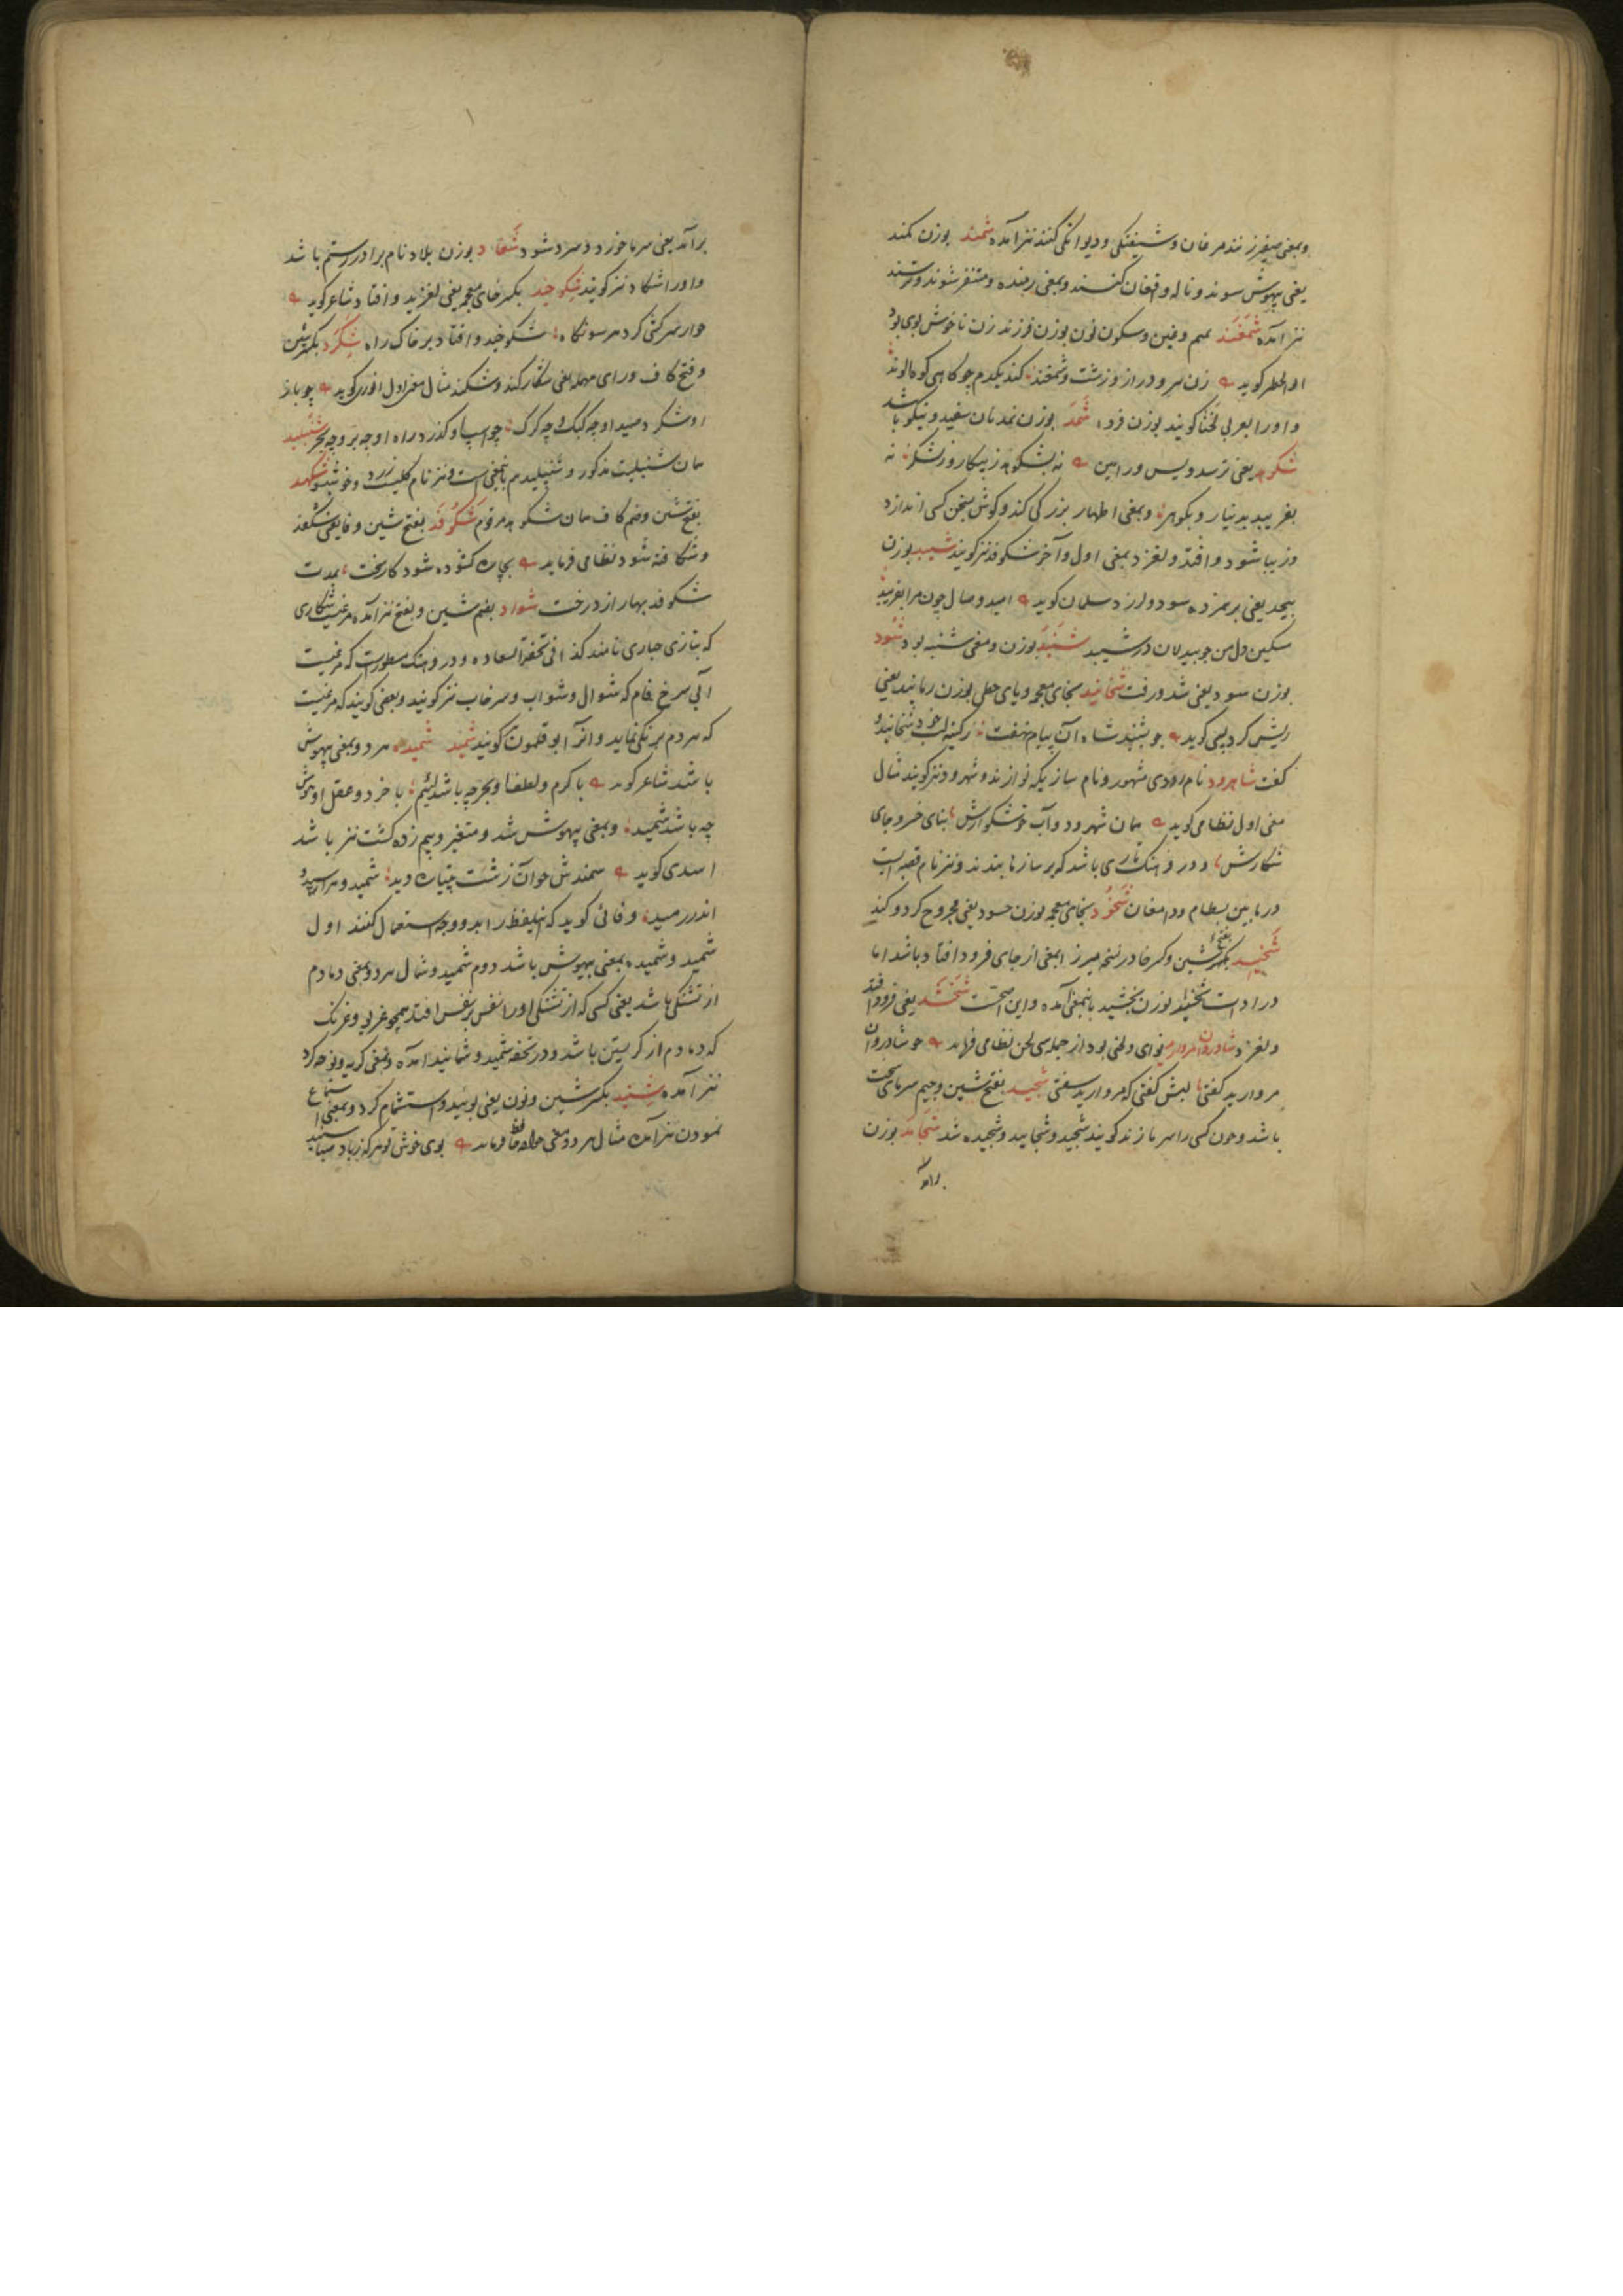 وبمعنی صفیر زنند مرغان و شیفتگی و دیوانگی کنند نیز آمده شمند بوزن کمند
یعنی بیهوش شوند و ناله و افغان کنند و بمعنی رمنده و متنفر شوند و ترسند
نیز آمده شمغند بمیم و غین و سکون نون بوزن فرزند زن ناخوش بوی بود
گوید زن و دراز و زشت و شمغند کند یکدم جو کاهی کوه الوند
و اورا بعربی لخنا گویند بوزن فردا شمد بوزن نمد نان سفید و نیکو باشد
شکوهد یعنی ترسد ویس ورامین نه بشکوهد ز پیکار و ز لشکر نه
بفریبد بدینار و بگوهر و بمعنی اظهار بزرگی کند و گوش بسخن کسی اندازد
و زیبا شود و افتد و لغزد بمعنی اول و آخر شکوفد نیز گویند شیبد بوزن
پیچد یعنی بر هم زده شود و لرزد سلمان گوید امید وصال چون مرا بفریبد
مسکین دل من چو بیدلان در شیبد شنبد بوزن و معنی شنبه بود شود
بوزن سود یعنی شد و رفت شخانید بخای معجمه و یای حطی بوزن رمانید یعنی
ریش کرد گوید چو بشنید شاه آن پیام نهفت ز کینه لب خود شخانید و
گفت شاهرود نام رودی مشهور و نام سازیکه نوازند و شهرود نیز گویند مثال
معنی اول نظامی گوید همان شهرود و آب خوشگوارش بنای خسرو و جای
شکارش و در فرهنگ تاری باشد که بر سازها بندند و نیز نام قصبه ایست
در مابین بسطام و دامغان شخود بخای معجمه بوزن حسود یعنی مجروح کرد و کند
شخید بکسر شین و کسر خا در نسخه میرزا بمعنی از جای فرود افتاد باشد اما
در ادات شخید بوزن بخشید باینمعنی آمده و این اصحست شخشد یعنی فرود افتد
و لغزد شادروان مروارید نوای و لحنی بود از جمله سی لحن نظامی فرماید چو شادروان
مروارید گفتی لبش گفتی که مروارید سفتی شجید بفتح شین و جیم سرمای سخت
باشد و چون کسی را سرما زند گویند شجید و شجایید و شجیده شد شجاند بوزن
برآمد
برآمد یعنی سرما خورد و سرد شود شغاد بوزن بلاد نام برادر رستم باشد
و اورا شکاد نیز گویند شکوخید بکسر خای معجمه یعنی لغزید و افتاد شاعر گوید
سرکشی کرد هر سو نگاه شکوخید و افتاد بر خاک راه شکرد بکسر شین
و فتح کاف و رای مهمله یعنی شکار کند و شکند مثال معنی اول انوری گوید چو باز
او شکرد صید او چه کبک و چه کرک چو اسپ او گذرد راه او چه بر و چه بحر شنبلید
همان شنبلیت مذکور و شنبلیدهم باینمعنی است و نیز نام گلیست زرد و خوشبو شکهد
بفتح شین و ضم کاف همان شکوهد مرقوم شکوفد بفتح شین و فا یعنی شکفد
و شکافته شود نظامی فرماید بچاره گشوده شود کار سخت بمدت
شکوفد بهار از درخت شواد بضم شین و بفتح نیز آمده مرغیست شکاری
که بتازی حباری نامند کذا فی تحفة السعاده و در فرهنگ مسطورست که مرغیست
آبی سرخ فام که شوال و شواب و سرخاب نیز گویند و بعضی گویند که مرغیست
که هر دم برنگی نماید و آنرا ابوقلمون گویند شمید شمیده هر دو بمعنی بیهوش
باشد شاعر گوید با کرم و لطف او بحر چه باشد لئیم با خرد و عقل او هوش
چه باشد شمید و بمعنی بیهوش شد و متغیر و بیم زده گشت نیز باشد
اسدی گوید سمندش چو آن زشت پتیاره دید شمید و هراسید و
اندر رمید وفائی گوید که این لفظ را بدو وجه استعمال کنند اول
شمید و شمیده بمعنی بیهوش باشد دوم شمید و شمال هر دو بمعنی دمادم
از تشنگی باشد یعنی کسی که از تشنگی اورا نفس بر نفس افتد همچو غریو و غرنگ
که دمادم از گریستن باشد و در تحفه شمید و شمانید آمده و بمعنی گریه و نوحه کرد
نیز آمده شنید بکسر شین و نون یعنی بوئید و استشمام کرد و بمعنی استماع
نمودن نیز آمده مثال هر دو معنی خواجه حافظ فرماید بوی خوش تو هر که ز باد صبا شنید